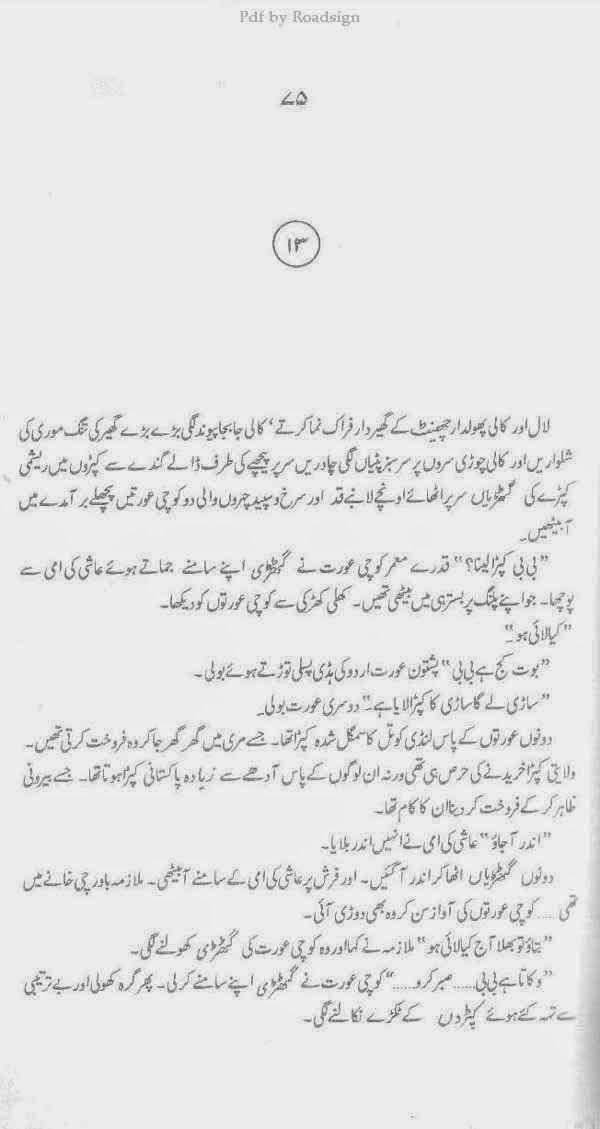 Pdf by Roadsign
۷۵
۱۳
لال اور کالی پھولدار چھینٹ کے گھیر دار فراک نما کرتے‘ کالی جا بجا پیوند لگی بڑے بڑے گھیر کی تنگ موری کی
شلواریں اور کالی چوڑی سروں پر سرسبز پٹیاں لگی چادریں سر پر پیچھے کی طرف ڈالے گندے سے کپڑوں میں ریشمی
کپڑے کی گھٹڑیاں سر پر اٹھائے اونچے لانبے قد اور سرخ و سپید چہروں والی دو کوچی عورتیں پچھلے برآمدے میں
آبیٹھیں۔
”بی بی کپڑا لینا؟“ قدرے معمر کوچی عورت نے گھٹڑی اپنے سامنے جماتے ہوئے عاشی کی امی سے
پوچھا۔ جو اپنے پلنگ پر بستر ہی میں بیٹھی تھیں۔ کھلی کھڑکی سے کوچی عورتوں کو دیکھا۔
”کیا لائی ہو۔“
”بوت کج ہے بی بی“ پشتون عورت اردو کی ہڈی پسلی توڑتے ہوئے بولی۔
”ساڑی لے گا ساڑی کا کپڑا لایا ہے۔“ دوسری عورت بولی۔
دونوں عورتوں کے پاس لنڈی کوتل کا سمگل شدہ کپڑا تھا۔ جسے مری میں گھر گھر جا کر وہ فروخت کرتی تھیں۔
ولایتی کپڑا خریدنے کی حرص ہی تھی ورنہ ان لوگوں کے پاس آدھے سے زیادہ پاکستانی کپڑا ہوتا تھا۔ جسے بیرونی
ظاہر کر کے فروخت کر دینا ان کا کام تھا۔
”اندر آ جاؤ“ عاشی کی امی نے انہیں اندر بلایا۔
دونوں گھٹڑیاں اٹھا کر اندر آ گئیں۔ اور فرش پر عاشی کی امی کے سامنے آبیٹھی۔ ملازمہ باورچی خانے میں
تھی ..... کوچی عورتوں کی آواز سن کر وہ بھی دوڑی آئی۔
”بتاؤ تو بھلا آج کیا لائی ہو“ ملازمہ نے کہا اور وہ کوچی عورت کی گھٹڑی کھولنے لگی۔
”وکاتا ہے بی بی..... صبر کرو.....“ کوچی عورت نے گھٹڑی اپنے سامنے کر لی۔ پھر گرہ کھولی اور بے ترتیبی
سے تہہ کئے ہوئے کپڑوں کے ٹکڑے نکالنے لگی۔